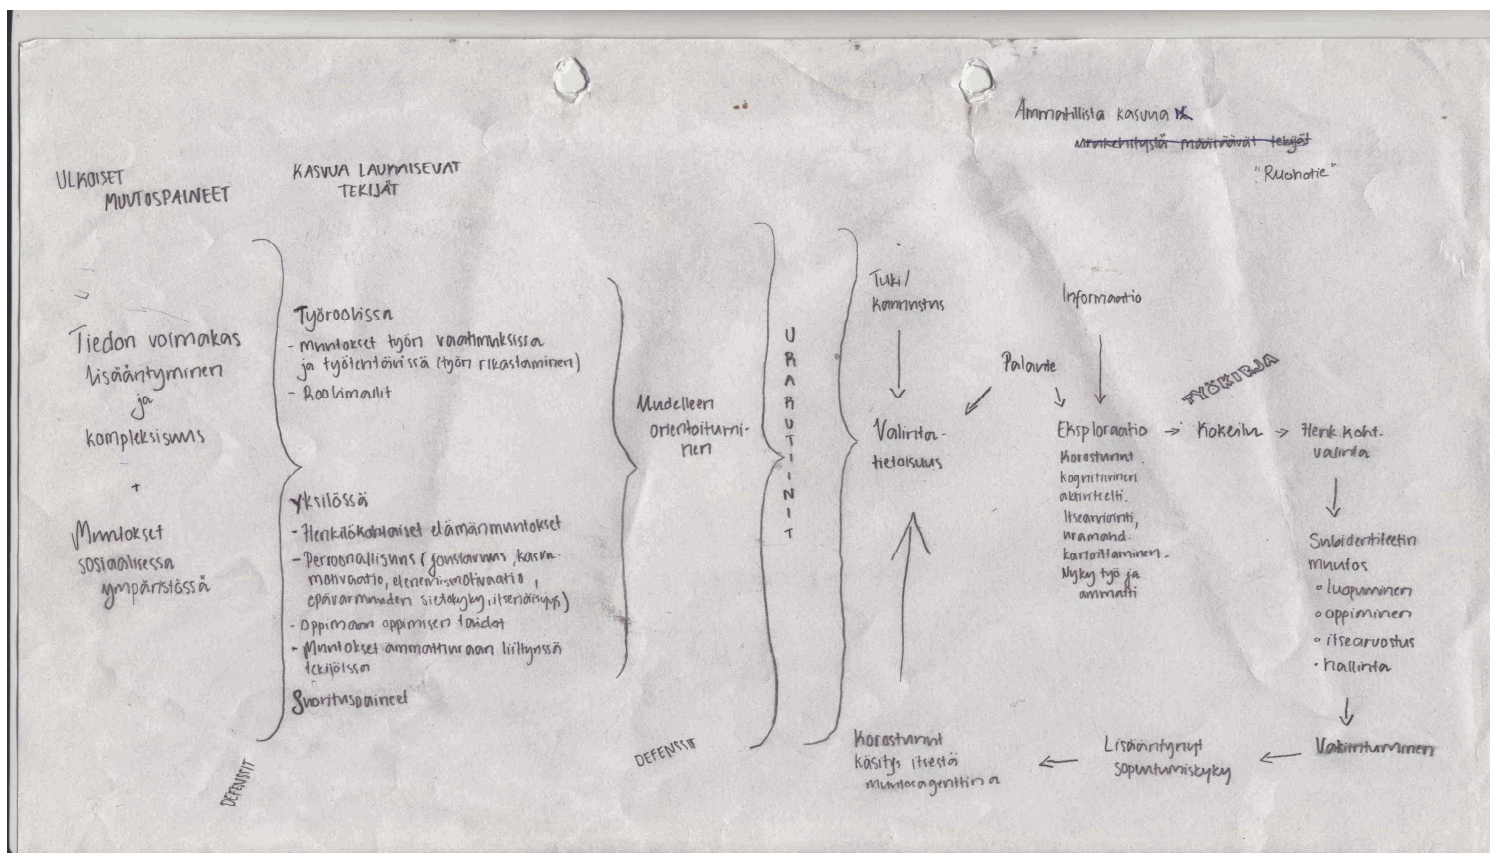 Ammatillista kasvua
urakehitystä määräävät tekijät
"Ruohotie"
ULKOISET
MUUTOSPAINEET
KASVUA LAUKAISEVAT
TEKIJÄT
Tiedon voimakas
lisääntyminen
ja
kompleksisuus
+
Muutokset
sosiaalisessa
ympäristössä
DEFENSSIT
Työroolissa
- muutokset työn vaatimuksissa
ja työtehtävissä (työn rikastaminen)
- Roolimallit
Yksilössä
- Henkilökohtaiset elämänmuutokset
- Persoonallisuus (joustavuus, kasvu-
motivaatio, etenemismotivaatio,
epävarmuuden sietokyky, itsenäisyys)
- Oppimaan oppimisen taidot
- Muutokset ammattiuraan liittyvissä
tekijöissä
Suorituspaineet
Uudelleen
orientoitumi-
nen
DEFENSSIT
URARUTIINIT
Tuki/
kannustus
Valinta-
tietoisuus
Informaatio
Palaute
Eksploraatio → Kokeilu → Henk.koht.
valinta
TYÖKIRJA
Korostunut
kognitiivinen
aktiviteetti.
Itsearviointi,
uramahd.
kartoittaminen.
Nyky työ ja
ammatti
Subidentiteetin
muutos
◦ luopuminen
◦ oppiminen
◦ itsearvostus
• hallinta
Vakiintuminen
Lisääntynyt
sopeutumiskyky
Korostunut
käsitys itsestä
muutosagenttina